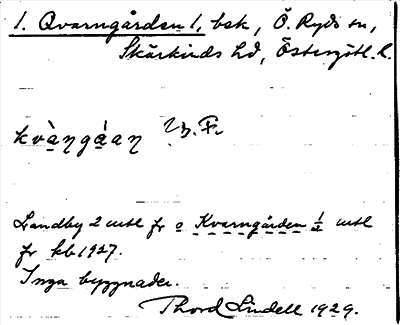 1. Qvarngården 1, bsk, Ö. Ryds sn,
Skärkinds hd, Östergötl. l.
kvàŋgáaŋ
Landby 2 mtl fr o Kvarngården mtl
fr kb 1927.
Inga byggnader.
Thord Lindell 1929.